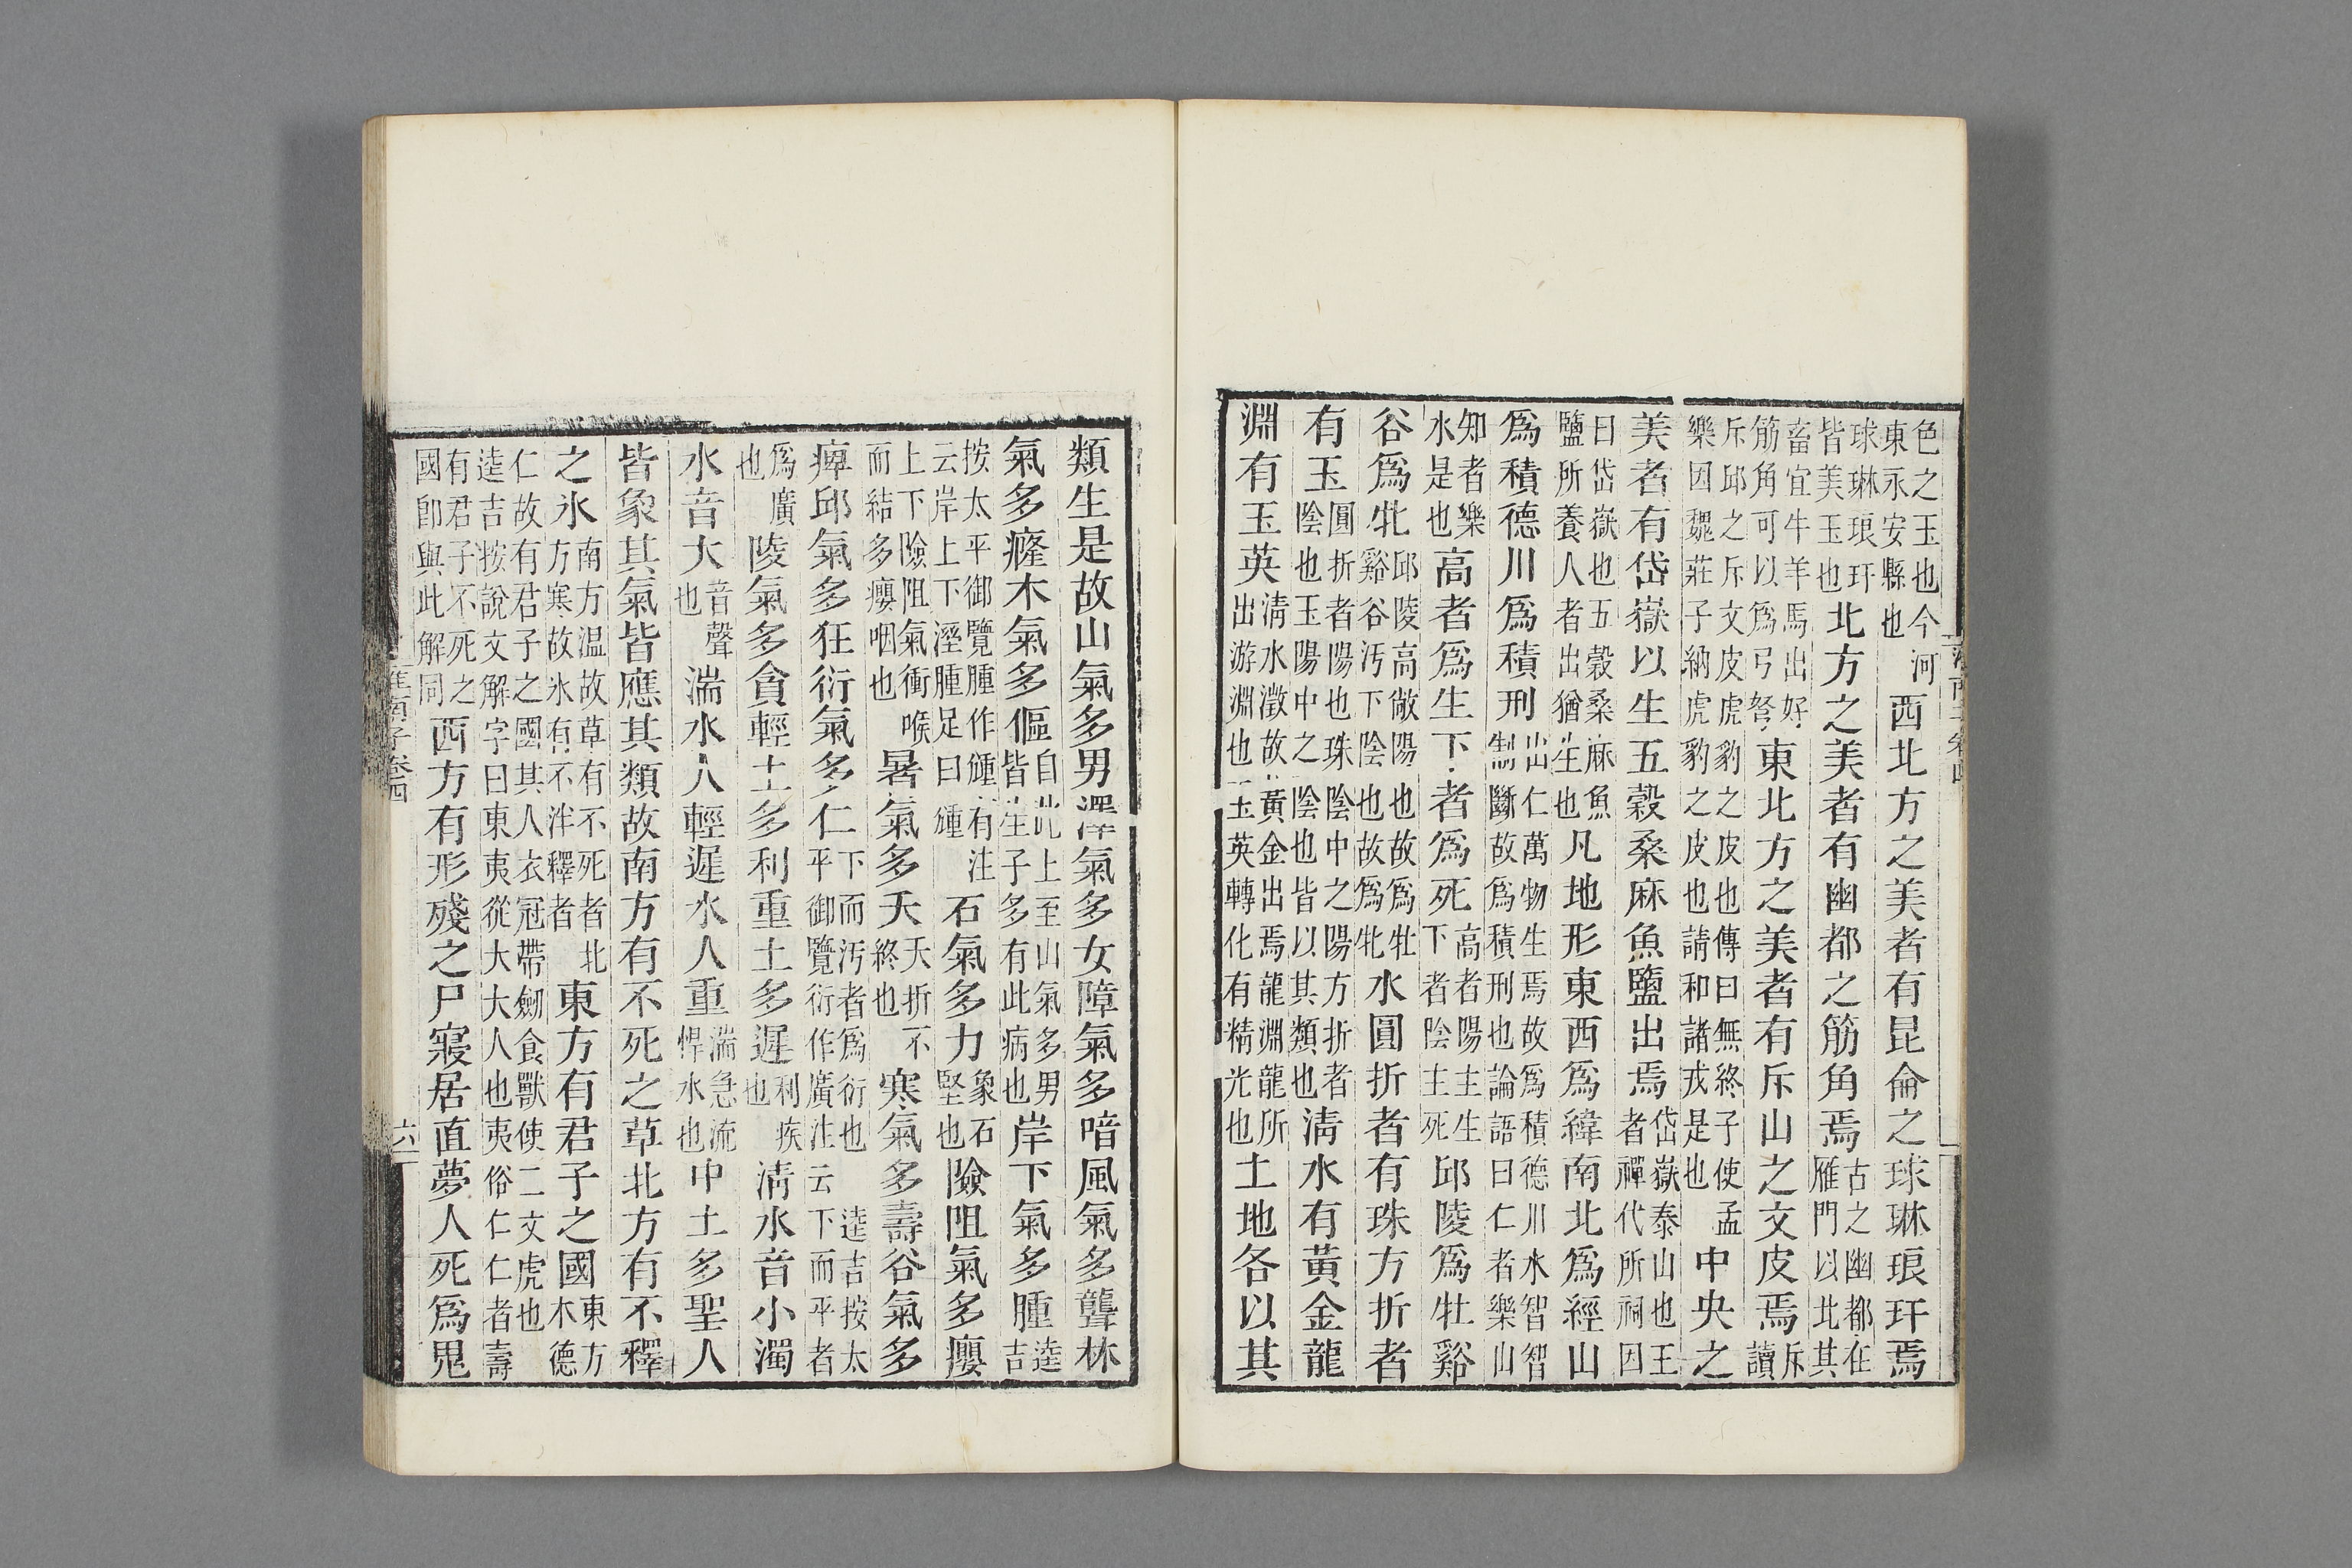 色之玉也今河東永安縣也西北方之美者有昆侖之球琳琅玕焉
球琳琅玕皆美玉也北方之美者有幽都之筋角焉古之幽都在雁門以北其
畜宜牛羊馬出好筋角可以爲弓弩東北方之美者有斥山之文皮焉斥讀
斥邱之斥文皮虎豹之皮也傳曰無終子使孟樂因魏莊子納虎豹之皮也請和諸戎是也中央之
美者有岱嶽以生五穀桑麻魚鹽出焉岱嶽泰山也王者禪代所祠因
曰岱嶽也五穀桑麻魚鹽所養人者出猶生也凡地形東西爲緯南北爲經山
爲積德川爲積刑山仁萬物生焉故爲積德川水智智制斷故爲積刑也論語曰仁者樂山
知者樂水是也高者爲生下者爲死高者陽主生下者陰主死邱陵爲牡谿
谷爲牝邱陵高敞陽也故爲牡谿谷汚下陰也故爲牝水圓折者有珠方折者
有玉圓折者陽也珠陰中之陽方折者陰也玉陽中之陰也皆以其類也清水有黃金龍
淵有玉英清水澂故黃金出焉龍淵龍所出游淵也玉英轉化有精光也土地各以其
類生是故山氣多男澤氣多女障氣多喑風氣多聾林
氣多癃木氣多傴自此上至山氣多男皆生子多有此病也岸下氣多腫逵吉
按太平御覽腫作尰有注云岸上下溼腫足曰尰石氣多力象石堅也險阻氣多癭
上下險阻氣衝喉而結多癭咽也暑氣多夭夭折不終也寒氣多壽谷氣多
痺邱氣多狂衍氣多仁下而汚者爲衍也逵吉按太平御覽衍作廣注云下而平者
爲廣也陵氣多貪輕土多利重土多遲利疾也清水音小濁
水音大音聲也湍水人輕遲水人重湍急流悍水也中土多聖人
皆象其氣皆應其類故南方有不死之草北方有不釋
之冰南方温故草有不死者北方寒故冰有不泮釋者東方有君子之國東方木德
仁故有君子之國其人衣冠帶劒食獸使二文虎也逵吉按說文解字曰東夷從大大人也夷俗仁仁者壽
有君子不死之國卽與此解同西方有形殘之尸寢居直夢人死爲鬼
淮南子卷四
六